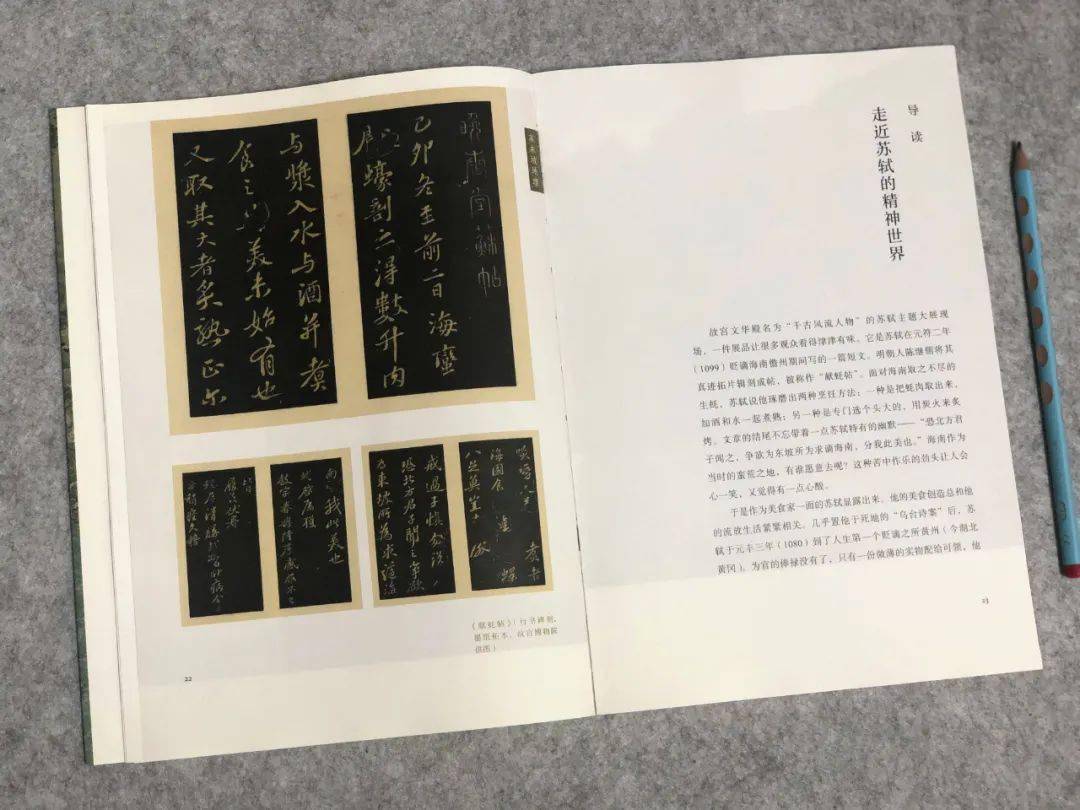 晚香堂苏帖
己卯冬至前二日海蛮
献蠔剖之得数升肉
与浆入水与酒并煮
食之甚美未始有也
又取其大者炙熟正尔
海国食
戒过子慎勿说
恐北方君子闻之争欲
为东坡所为求谪海
南分我此美也
《献蚝帖》(行书碑刻，
墨纸拓本，故宫博物院
供图)
22
导读
走近苏轼的精神世界
故宫文华殿名为“千古风流人物”的苏轼主题大展现
场，一种展品让很多观众看得津津有味。它是苏轼在元符二年
(1099)贬谪海南儋州期间写的一篇短文。明朝人陈继儒将其
真迹拓片辑刻成帖，被称作“献蚝帖”。面对海南取之不尽的
生蚝，苏轼说他琢磨出两种烹饪方法：一种是把蚝肉取出来，
加酒和水一起煮熟；另一种是专门选个头大的，用炭火来炙
烤。文章的结尾不忘带着一点苏轼特有的幽默——“恐北方君
子闻之，争欲为东坡所为求谪海南，分我此美也。”海南作为
当时的蛮荒之地，有谁愿意去呢？这种苦中作乐的劲头让人会
心一笑，又觉得有一点心酸。
于是作为美食家一面的苏轼显露出来。他的美食创造总和他
的流放生活紧紧相关。几乎置他于死地的“乌台诗案”后，苏
轼于元丰三年(1080)到了人生第一个贬谪之所黄州(今湖北
黄冈)。为官的俸禄没有了，只有一份微薄的实物配给可领，他
23